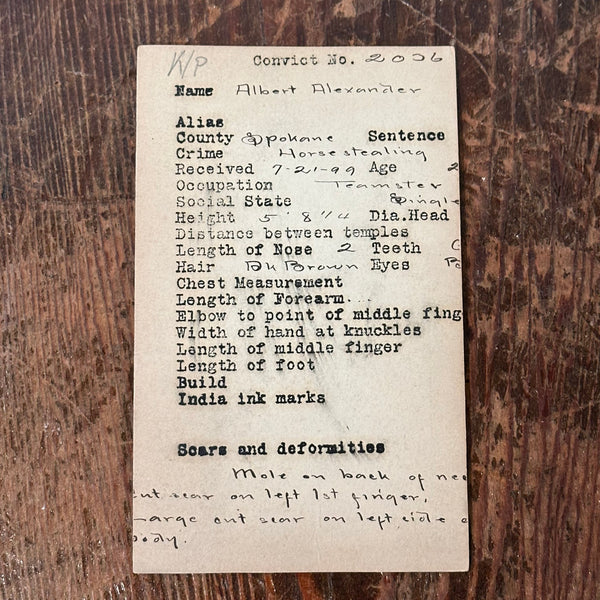 W/P Convict No. 2036
Name Albert Alexander
Alias
County Spokane Sentence
Crime Horsestealing
Received 7-21-99 Age 2
Occupation Teamster
Social State Single
Height 5' 8 1/4 Dia.Head
Distance between temples
Length of Nose 2 Teeth G
Hair Dk Brown Eyes
Chest Measurement
Length of Forearm...
Elbow to point of middle fing
Width of hand at knuckles
Length of middle finger
Length of foot
Build
India ink marks
Scars and deformities
Mole on back of nec
cut scar on left 1st finger,
Large cut scar on left side o
body.